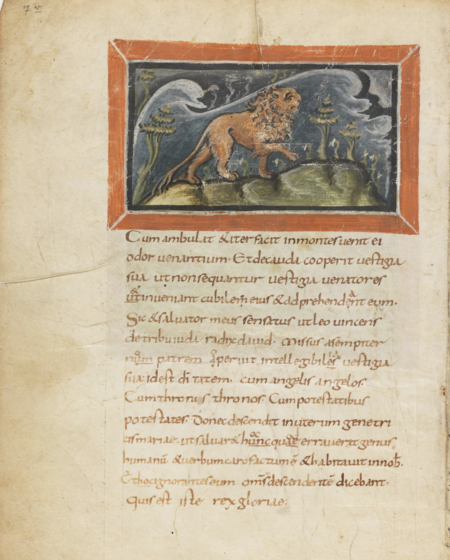 7v
Cum ambulat & iter facit in montes uenit ei
odor uenantium. Et decauda cooperit uestigia
sua ut non sequantur uestigia uenatores
& inueniant cubilem eius & adprehendant eum.
Sic & saluator meus sensatus ut leo uincens
detribu iuda radix dauid. missus asempiter
patrem. uestigia
sua id est di tatem. cum angelis angelos.
Cum thronis thronos. Cum potestatibus
potestates. Donec descendit in uterum genetri
cis mariae. ut saluaret errauerat genus
humanū & uerbum caro factum ē & habitauit
Et hoc ignorantes eum descendentē dicebant.
Quis est iste rex gloriae.